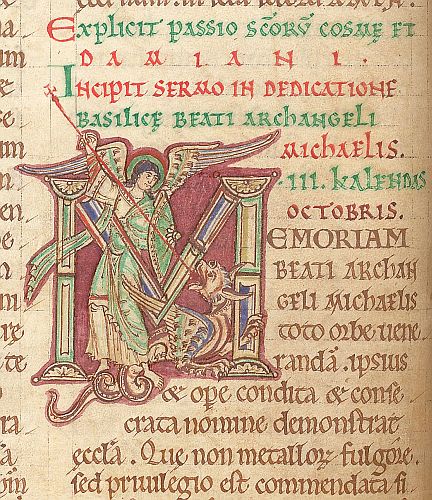 EXPLICIT PASSIO SCŌRV̄ COSMĘ ET
DAMIANI.
INCIPIT SERMO IN DEDICATIONE
BASILICĘ BEATI ARCHANGELI
MICHAELIS.
.III. KALENDAS
OCTOBRIS.
MEMORIAM
BEATI ARCHAN
GELI MICHAELIS
TOTO ORBE VENE
randā. ipsius
& ope condita & conse
crata nomine demonstrat
ecclā. Que non metallor̄ fulgore,
sed privilegio est commendata si